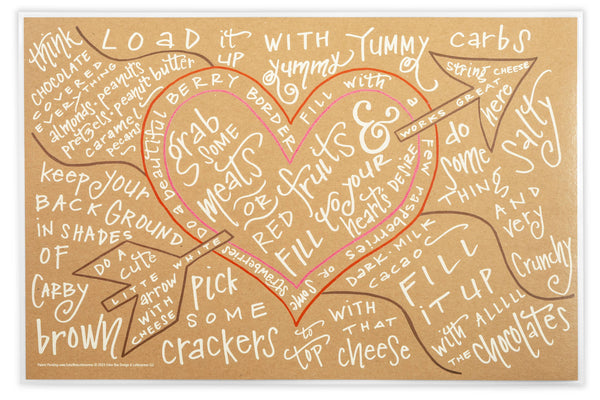 LOAD it UP WITH YUMMY yummy carbs
think
CHOCOLATE
COVERED
EVERYTHING
almonds · peanuts
pretzels · peanut butter
caramel
pecans
Do a beautiful BERRY BORDER
FILL with a few raspberries OR some strawberries
grab
SOME
meats
OR
RED fruits &
FILL to YOUR
hearts DESIRE
STRING CHEESE
WORKS GREAT
here
do
some
THING
Salty
AND
very
Crunchy
keep your
BACKGROUND
IN SHADES
OF
CARBY
brown
DO A
cute
LITTLE WHITE
arrow
WITH
CHEESE
pick
SOME
crackers
to top
WITH
THAT
cheese
DARK · MILK
cacao
FILL
IT UP
with ALLLL
THE chocolates